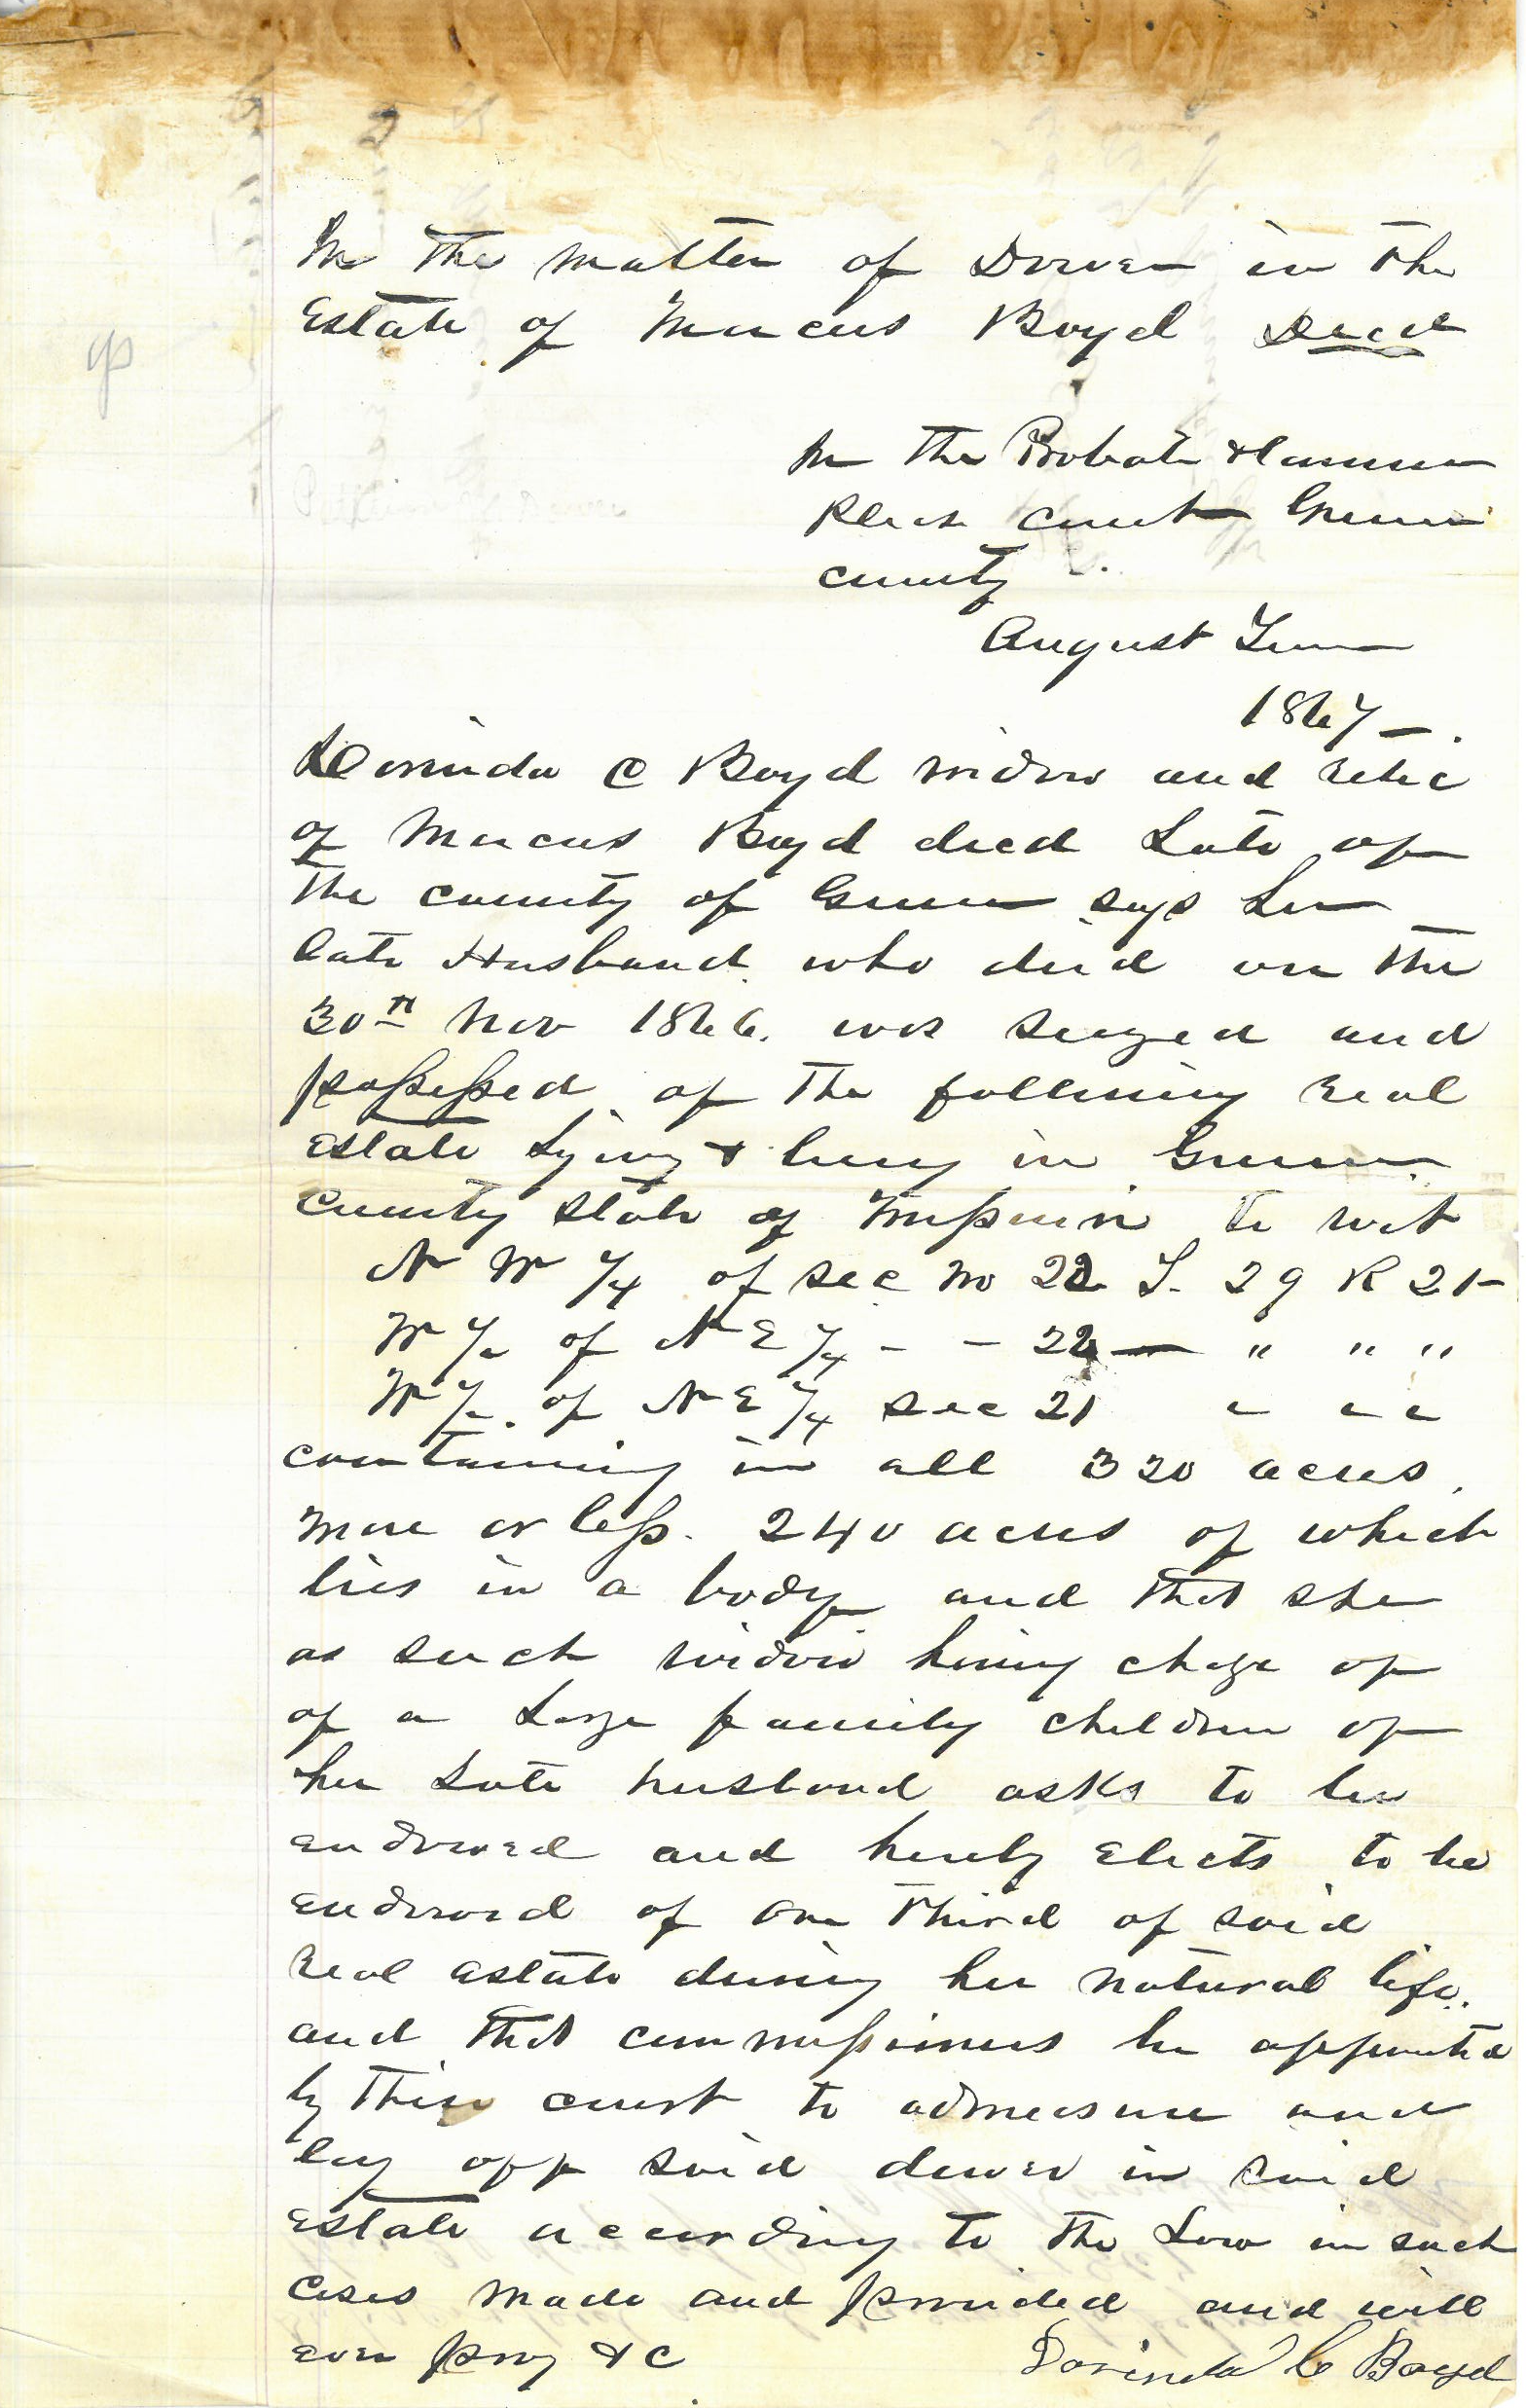 In the matter of Dower in the
Estate of Marcus Boyd Decd
In the Probate & Common
Pleas court Greene
county
August Term
1867
Dorinda C Boyd widow and relic
of Marcus Boyd decd Late of
the county of Greene says her
late Husband who died on the
30th Nov 1866. was seized and
possessed of the following real
Estate Lying & being in Greene
county State of Missouri to wit
N W 1/4 of sec No 22 T. 29 R 21
W 1/2 of N E 1/4 - - 22 — " " "
W 1/2. of N E 1/4 sec 21 " " "
containing in all 320 acres.
more or less. 240 acres of which
lies in a body and that she
as such widow having charge of
of a Large family children of
her Late husband asks to be
endowed and hereby elects to be
endowed of one third of said
real estate during her natural life.
and that commissioners be appointed
by this court to admeasure and
lay off said dower in said
Estate according to the Law in such
cases made and provided and will
ever pray &c Dorinda C Boyd